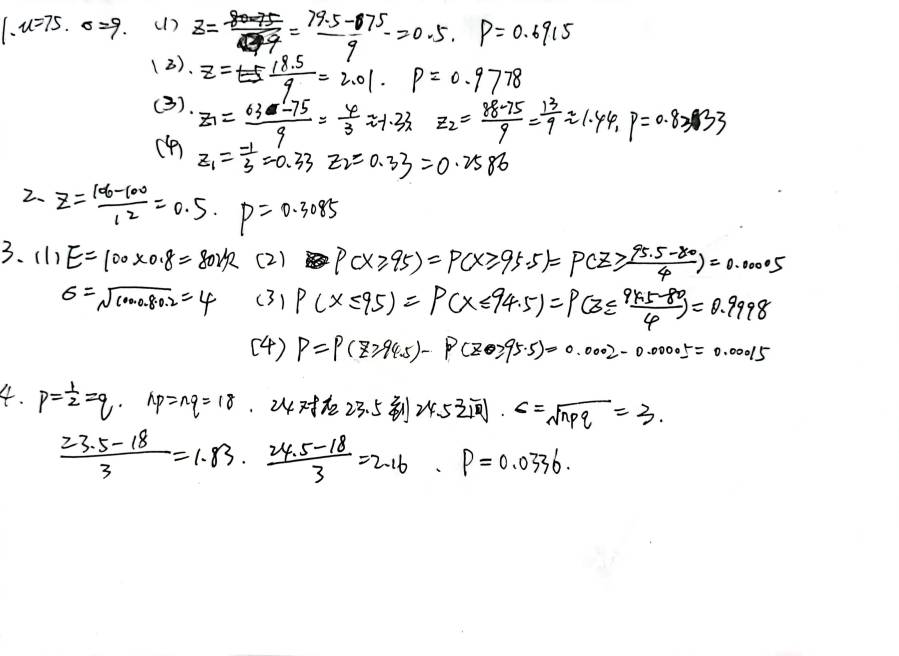 1. u=75. σ=9. (1) z = = \frac{79.5-75}{9} = 0.5. P=0.6915
(2). z = \frac{18.5}{9} = 2.01. P = 0.9778
(3). z1 = \frac{63-75}{9} = \frac{4}{3} ≈ 1.33 z2 = \frac{88-75}{9} = \frac{13}{9} ≈ 1.44, P=0.8333
(4) z1 = \frac{-1}{3} = -0.33 z2 = 0.33 = 0.2586
2. z = \frac{106-100}{12} = 0.5. P=0.3085
3. (1) E = 100×0.8 = 80次 (2) P(X≥95) = P(X≥95.5) = P(Z≥\frac{95.5-80}{4}) = 0.00005
6 = √100·0.8·0.2 = 4 (3) P(X≤95) = P(X≤94.5) = P(Z≤\frac{94.5-80}{4}) = 0.9998
(4) P = P(Z≥94.5) - P(Z≥95.5) = 0.0002 - 0.00005 = 0.00015
4. P=\frac{1}{2}=q. np=nq=18. 24对应23.5到24.5之间. 6=√npq = 3.
\frac{23.5-18}{3} = 1.83. \frac{24.5-18}{3} = 2.16 、 P=0.0336.